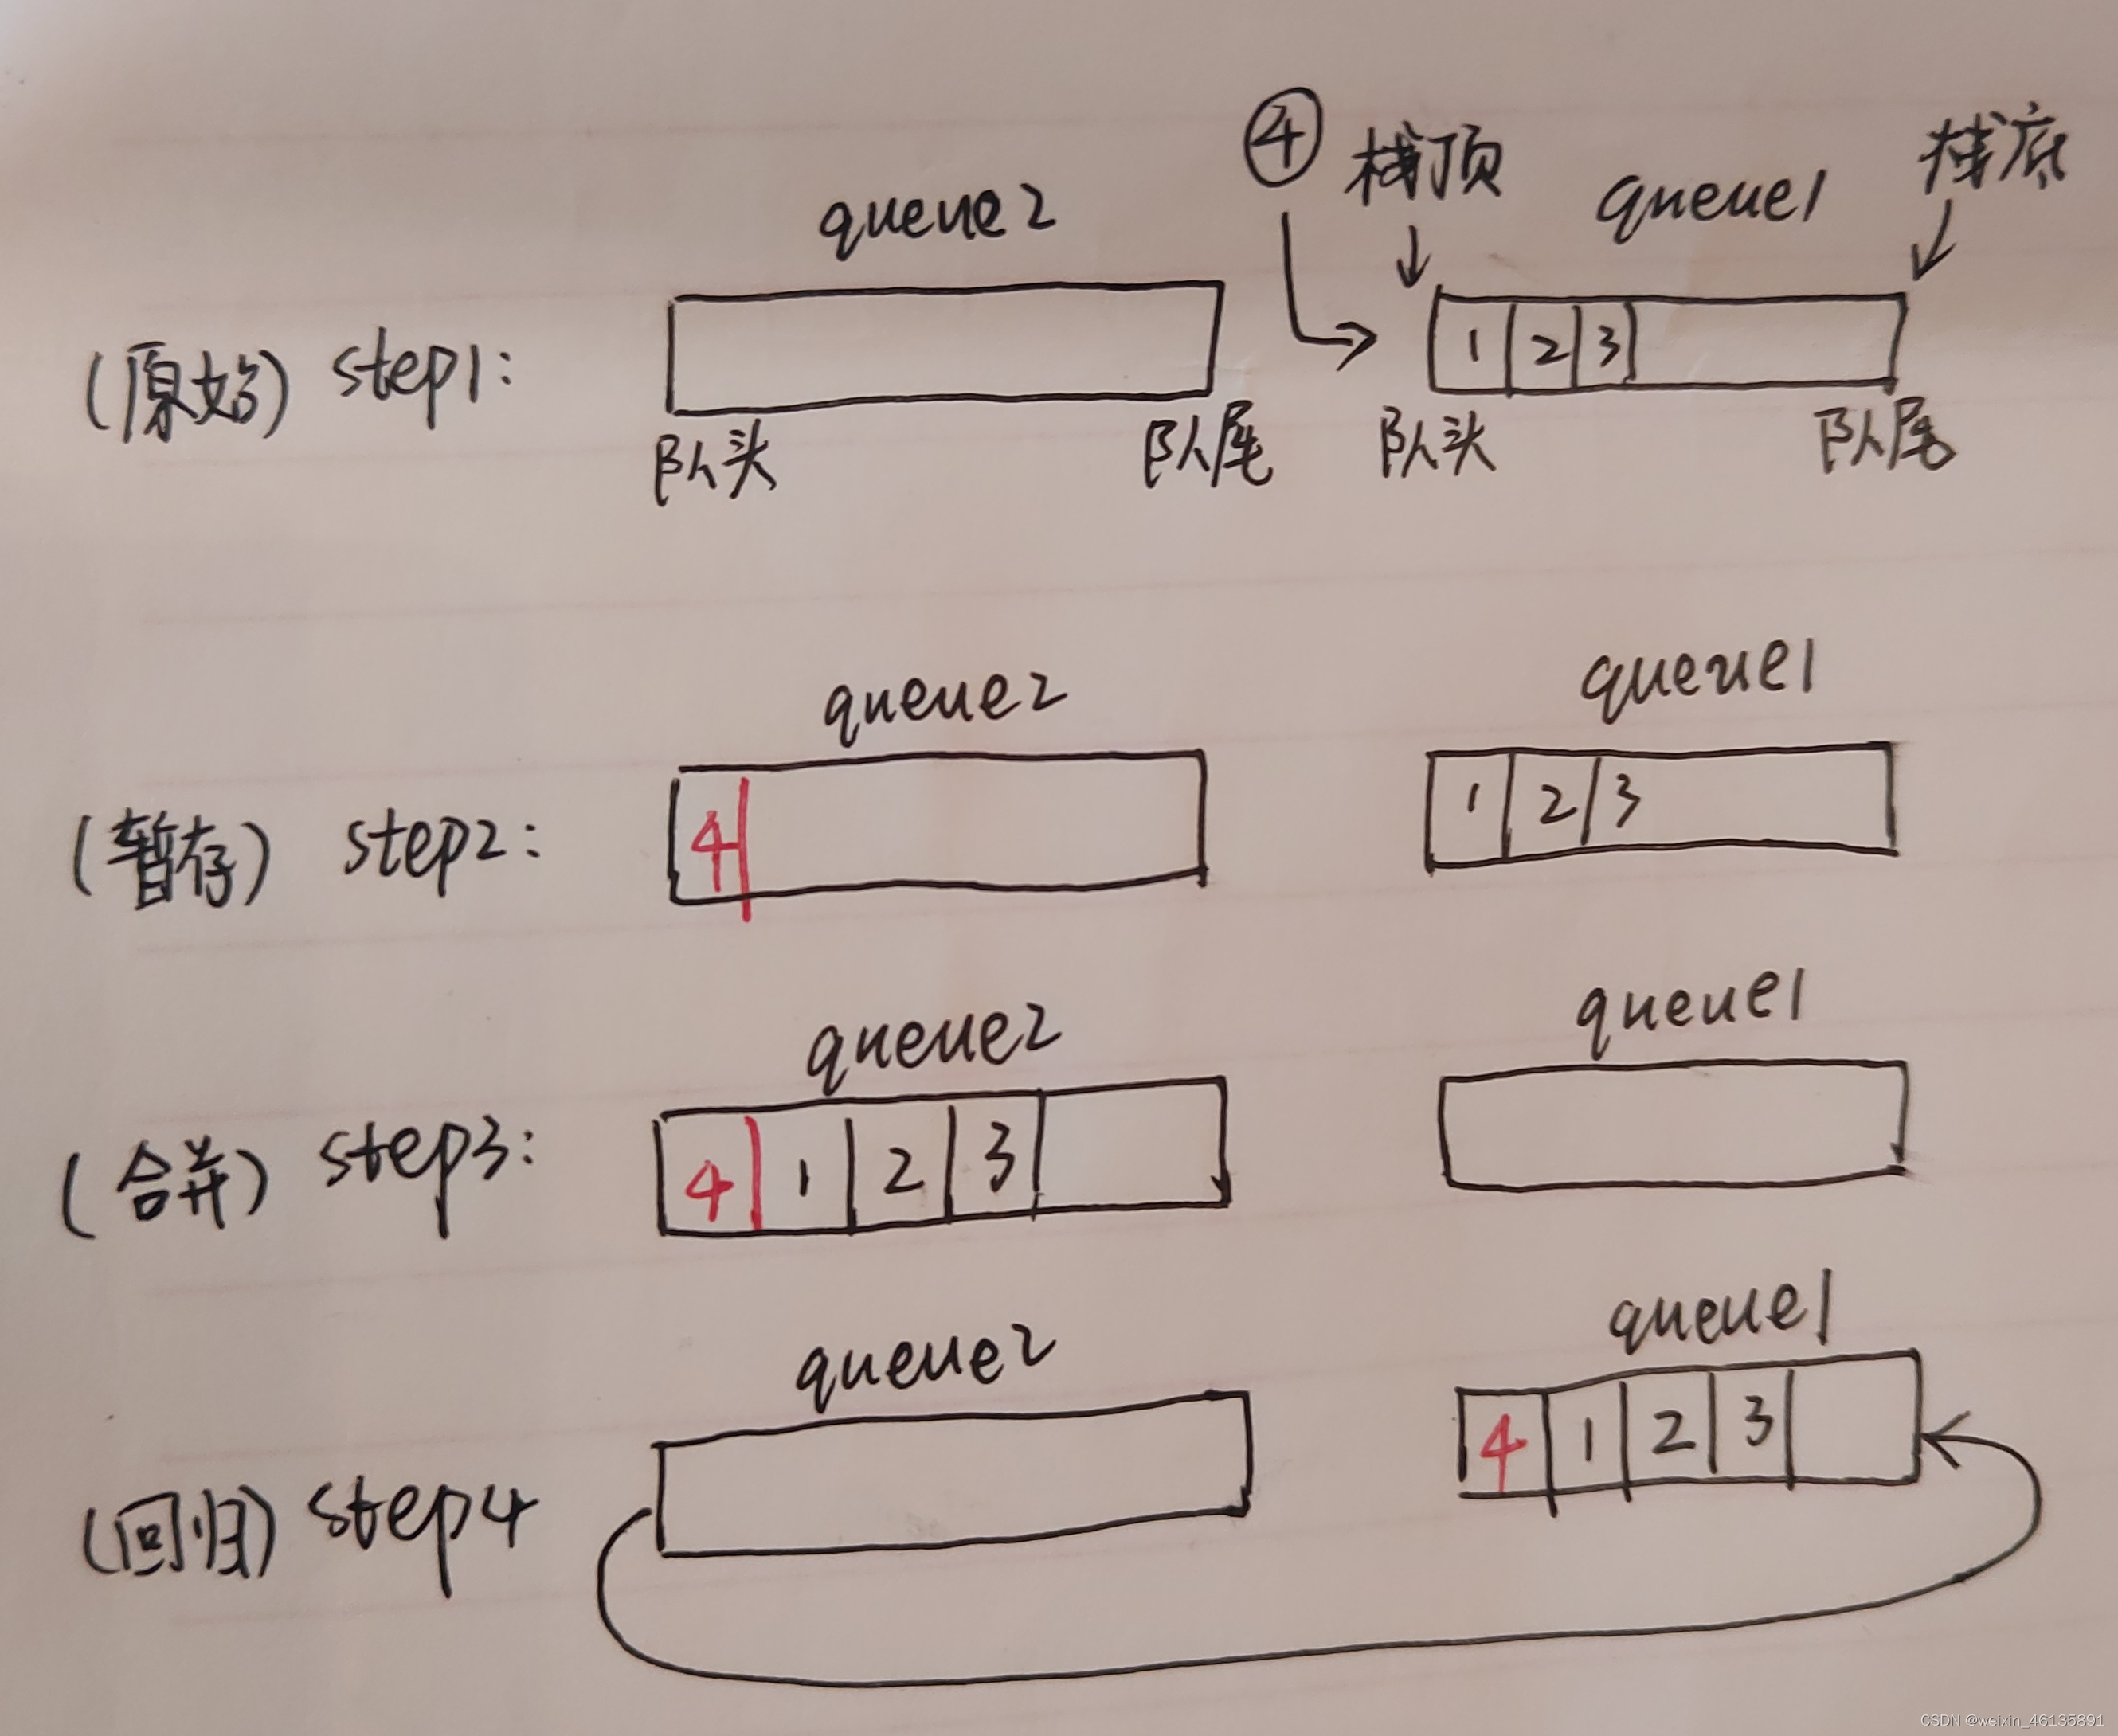 ④ 栈顶 栈底
queue2 queue1
(原始) step1: 1 2 3
队头 队尾 队头 队尾
queue2 queue1
(暂存) step2: 4 1 2 3
queue2 queue1
(合并) step3: 4 1 2 3
queue2 queue1
(回归) step4 4 1 2 3
CSDN @weixin_46135891